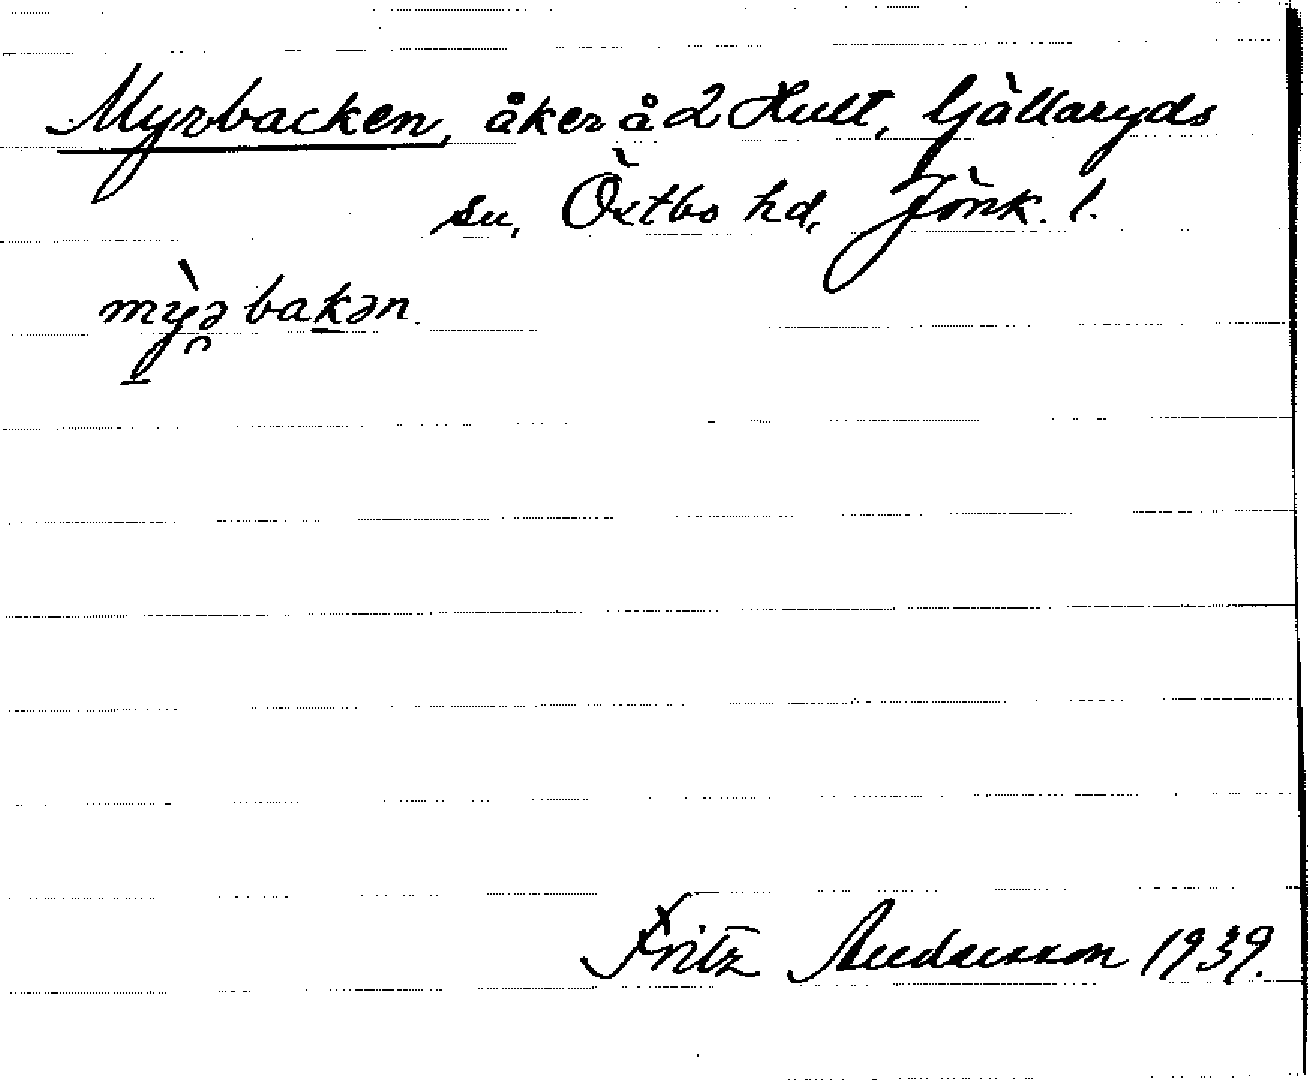 Myrbacken, åker å 2 Hult, Gällaryds
sn, Östbo hd, Jönk. l.
mỳə̯bakən.
Fritz Andersson 1939.